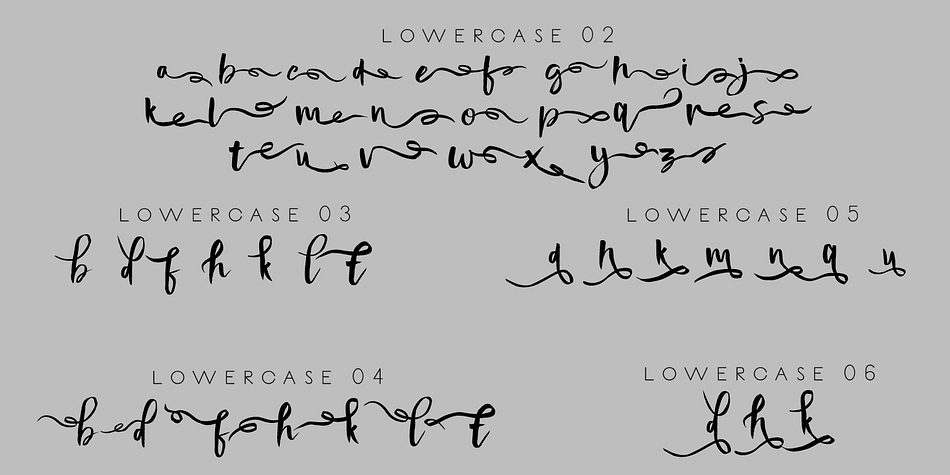 LOWERCASE 02
a b c d e f g h i j
k l m n o p q r s
t u v w x y z
LOWERCASE 03
b d f h k l t
LOWERCASE 05
d h k m n q u
LOWERCASE 04
b d f h k l t
LOWERCASE 06
d h k